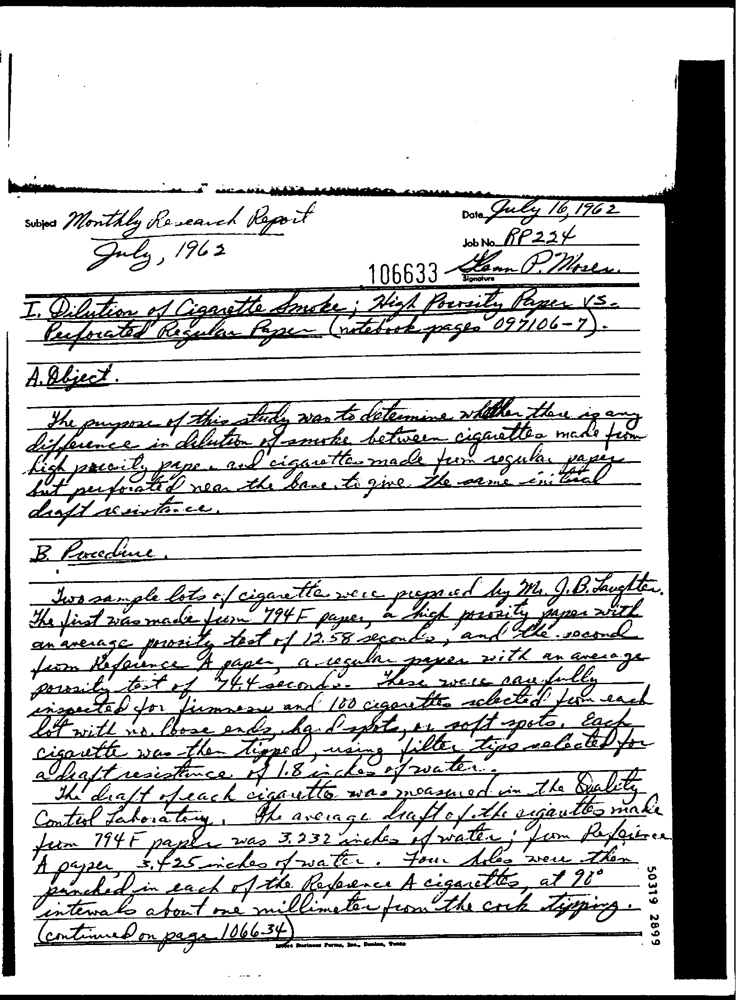 Subject Monthly Research Report
Date July 16, 1962
July, 1962
Job No. RP224
106633 Glenn P. Moser.
Signature
I. Dilution of Cigarette Smoke; High Porosity Paper vs.
Perforated Regular Paper (notebook pages 097106-7).
A. Object.
The purpose of this study was to determine whether there is any
difference in dilution of smoke between cigarettes made from
high porosity paper and cigarettes made from regular paper
but perforated near the base to give the same initial
draft resistance.
B. Procedure.
Two sample lots of cigarettes were prepared by Mr. J. B. Laughter.
The first was made from 794F paper, a high porosity paper with
an average porosity test of 12.58 seconds, and the second
from Reference A paper, a regular paper with an average
porosity test of 74.4 seconds. These were carefully
inspected for firmness and 100 cigarettes selected from each
lot with no loose ends, hard spots, or soft spots. Each
cigarette was then tipped, using filter tips selected for
a draft resistance of 1.8 inches of water.
The draft of each cigarette was measured in the Quality
Control Laboratory. The average draft of the cigarettes made
from 794F paper was 3.232 inches of water; from Reference
A paper, 3.425 inches of water. Four holes were then
punched in each of the Reference A cigarettes, at 90°
intervals about one millimeter from the cork tipping.
(continued on page 106634)
Moore Business Forms, Inc., Denton, Texas
50319 2899